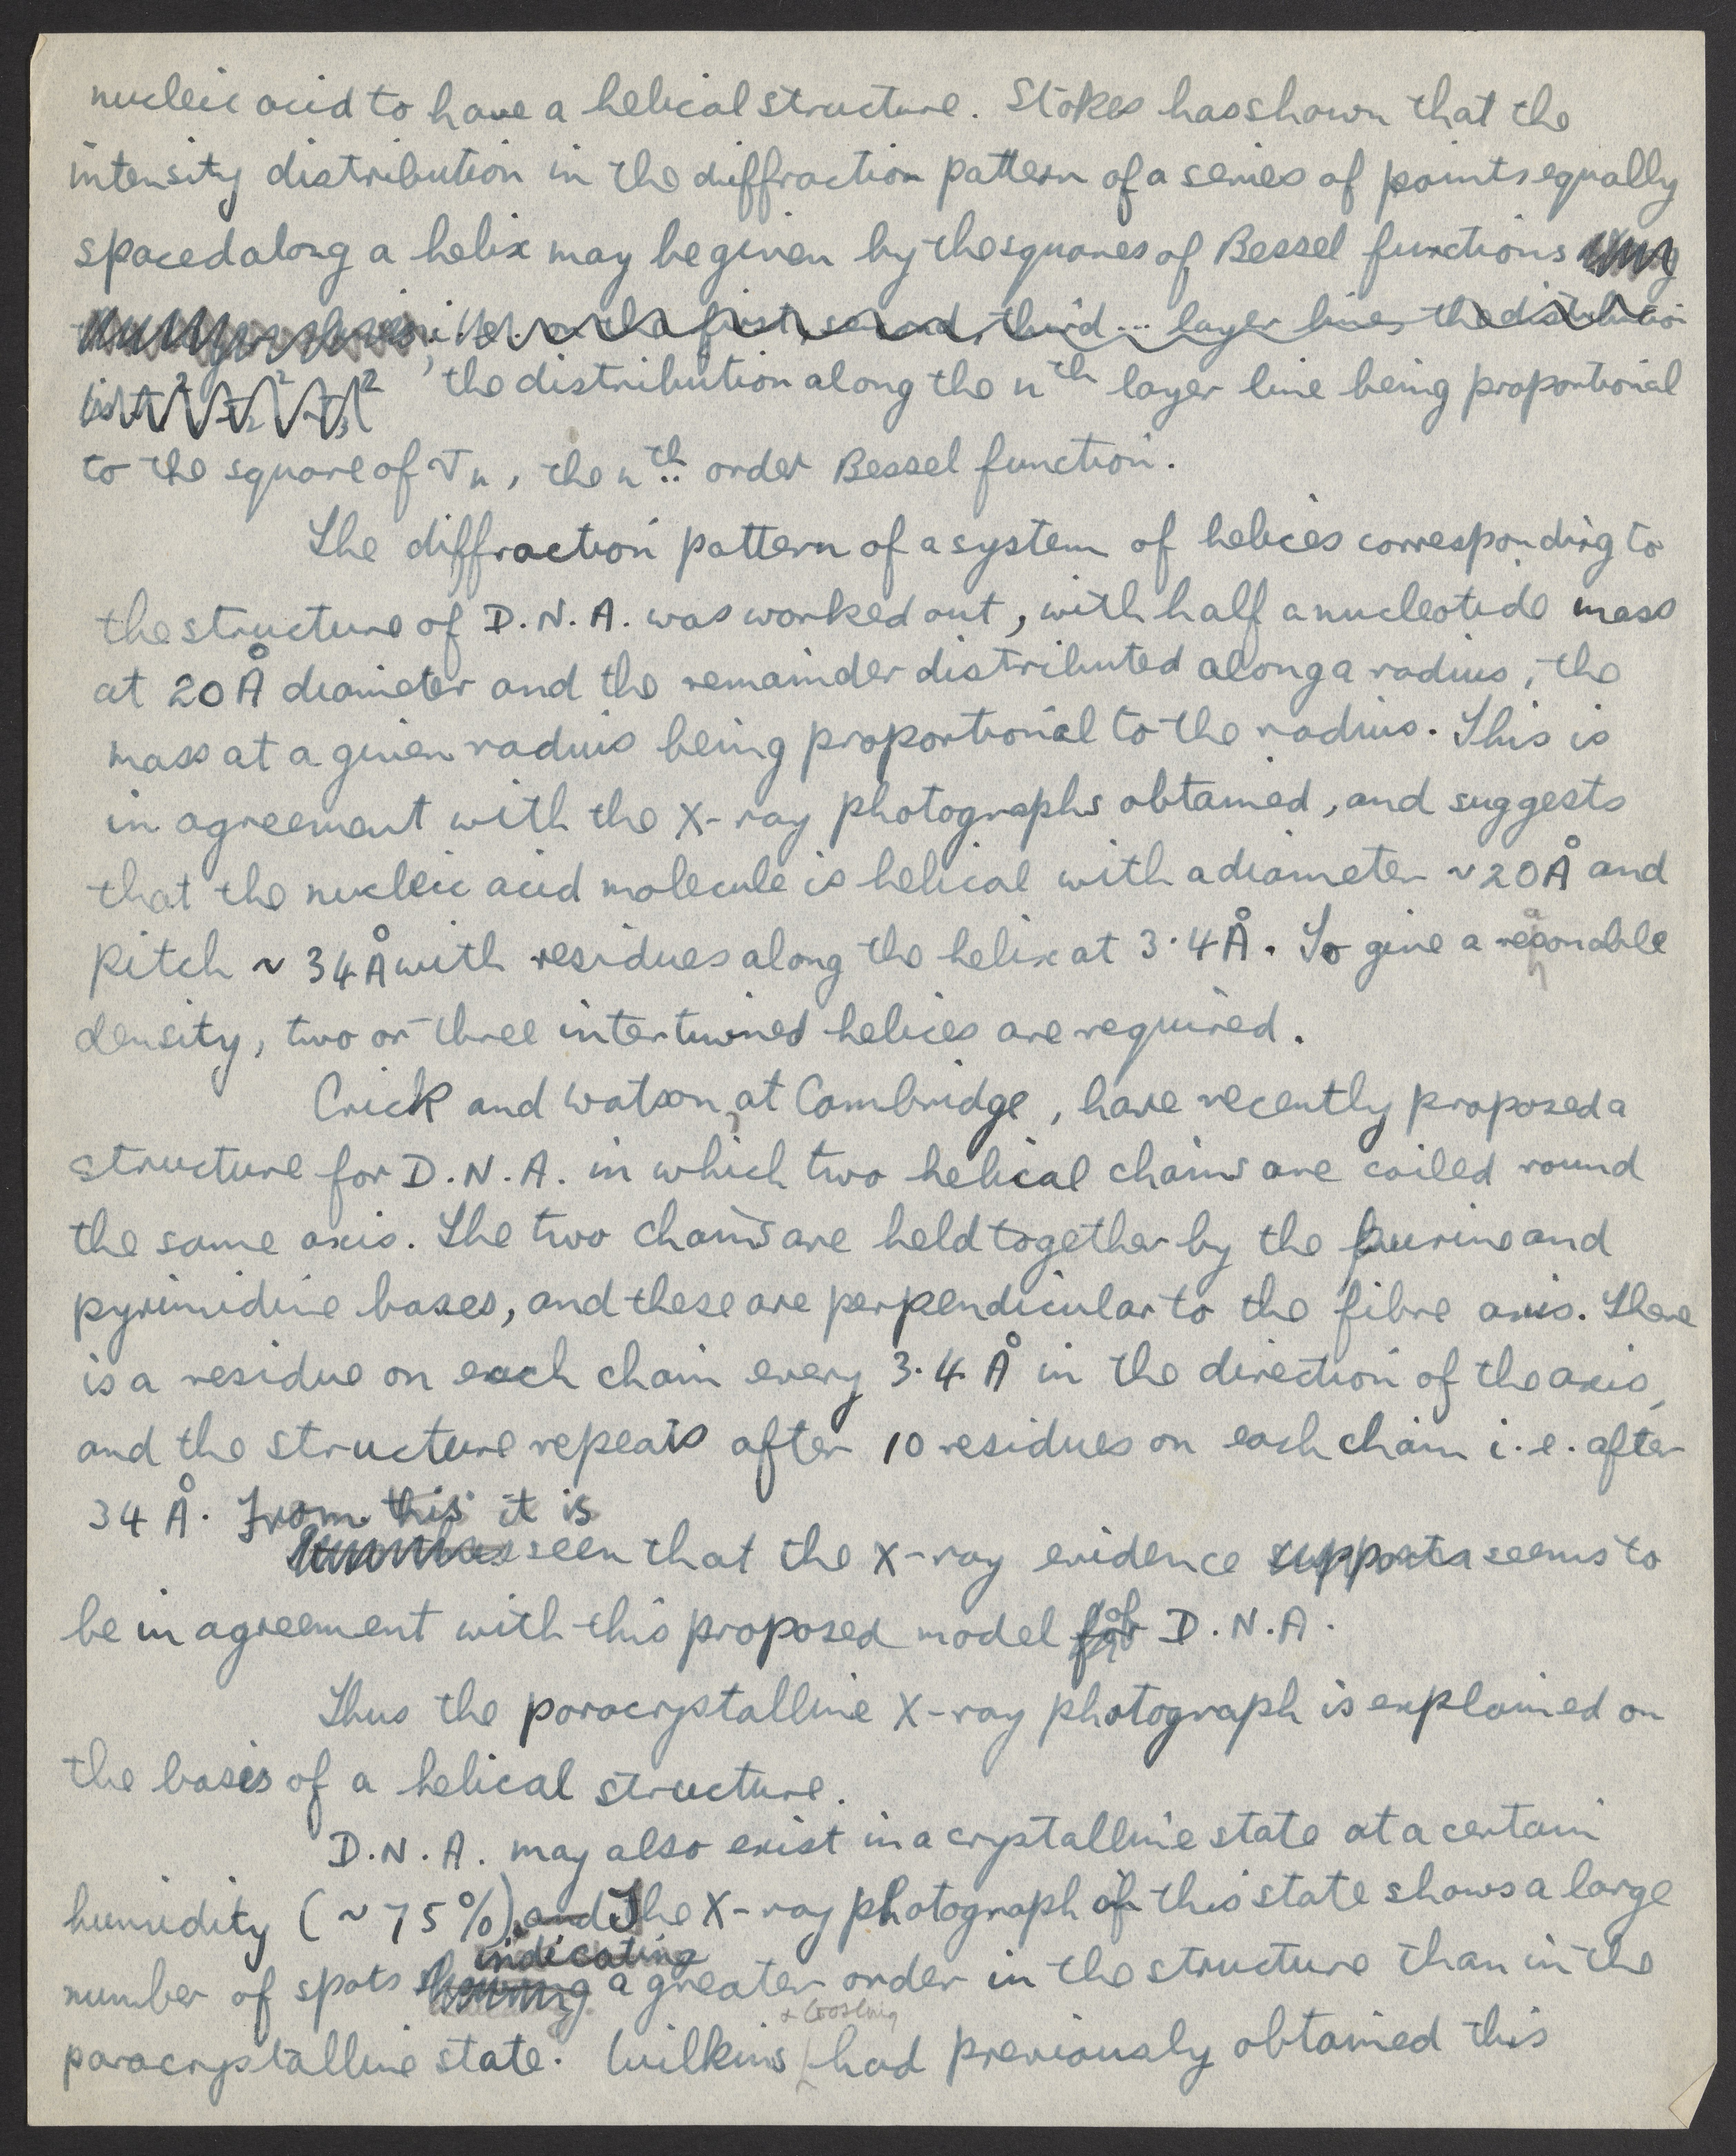 nucleic acid to have a helical structure. Stokes has shown that the
intensity distribution in the diffraction pattern of a series of points equally
spaced along a helix may be given by the squares of Bessel functions
i.e. on the first, second, third ... layer lines the distribution
, the distribution along the nth layer line being proportional
to the square of Jn, the nth order Bessel function.
The diffraction pattern of a system of helices corresponding to
the structure of D.N.A. was worked out, with half a nucleotide mass
at 20Å diameter and the remainder distributed along a radius, the
mass at a given radius being proportional to the radius. This is
in agreement with the X-ray photographs obtained, and suggests
that the nucleic acid molecule is helical with a diameter ~20Å and
pitch ~ 34Å with residues along the helix at 3·4Å. To give a reasonable
density, two or three intertwined helices are required.
Crick and Watson, at Cambridge, have recently proposed a
structure for D.N.A. in which two helical chains are coiled round
the same axis. The two chains are held together by the purine and
pyrimidine bases, and these are perpendicular to the fibre axis. There
is a residue on each chain every 3.4 Å in the direction of the axis,
and the structure repeats after 10 residues on each chain i.e. after
34 Å. From this it is
seen that the X-ray evidence supports seems to
be in agreement with this proposed model for of D.N.A.
Thus the paracrystalline X-ray photograph is explained on
the basis of a helical structure.
D.N.A. may also exist in a crystalline state at a certain
humidity (~75%). and The X-ray photograph of this state shows a large
indicating
number of spots showing a greater order in the structure than in the
+ Gosling
paracrystalline state. Wilkins had previously obtained this